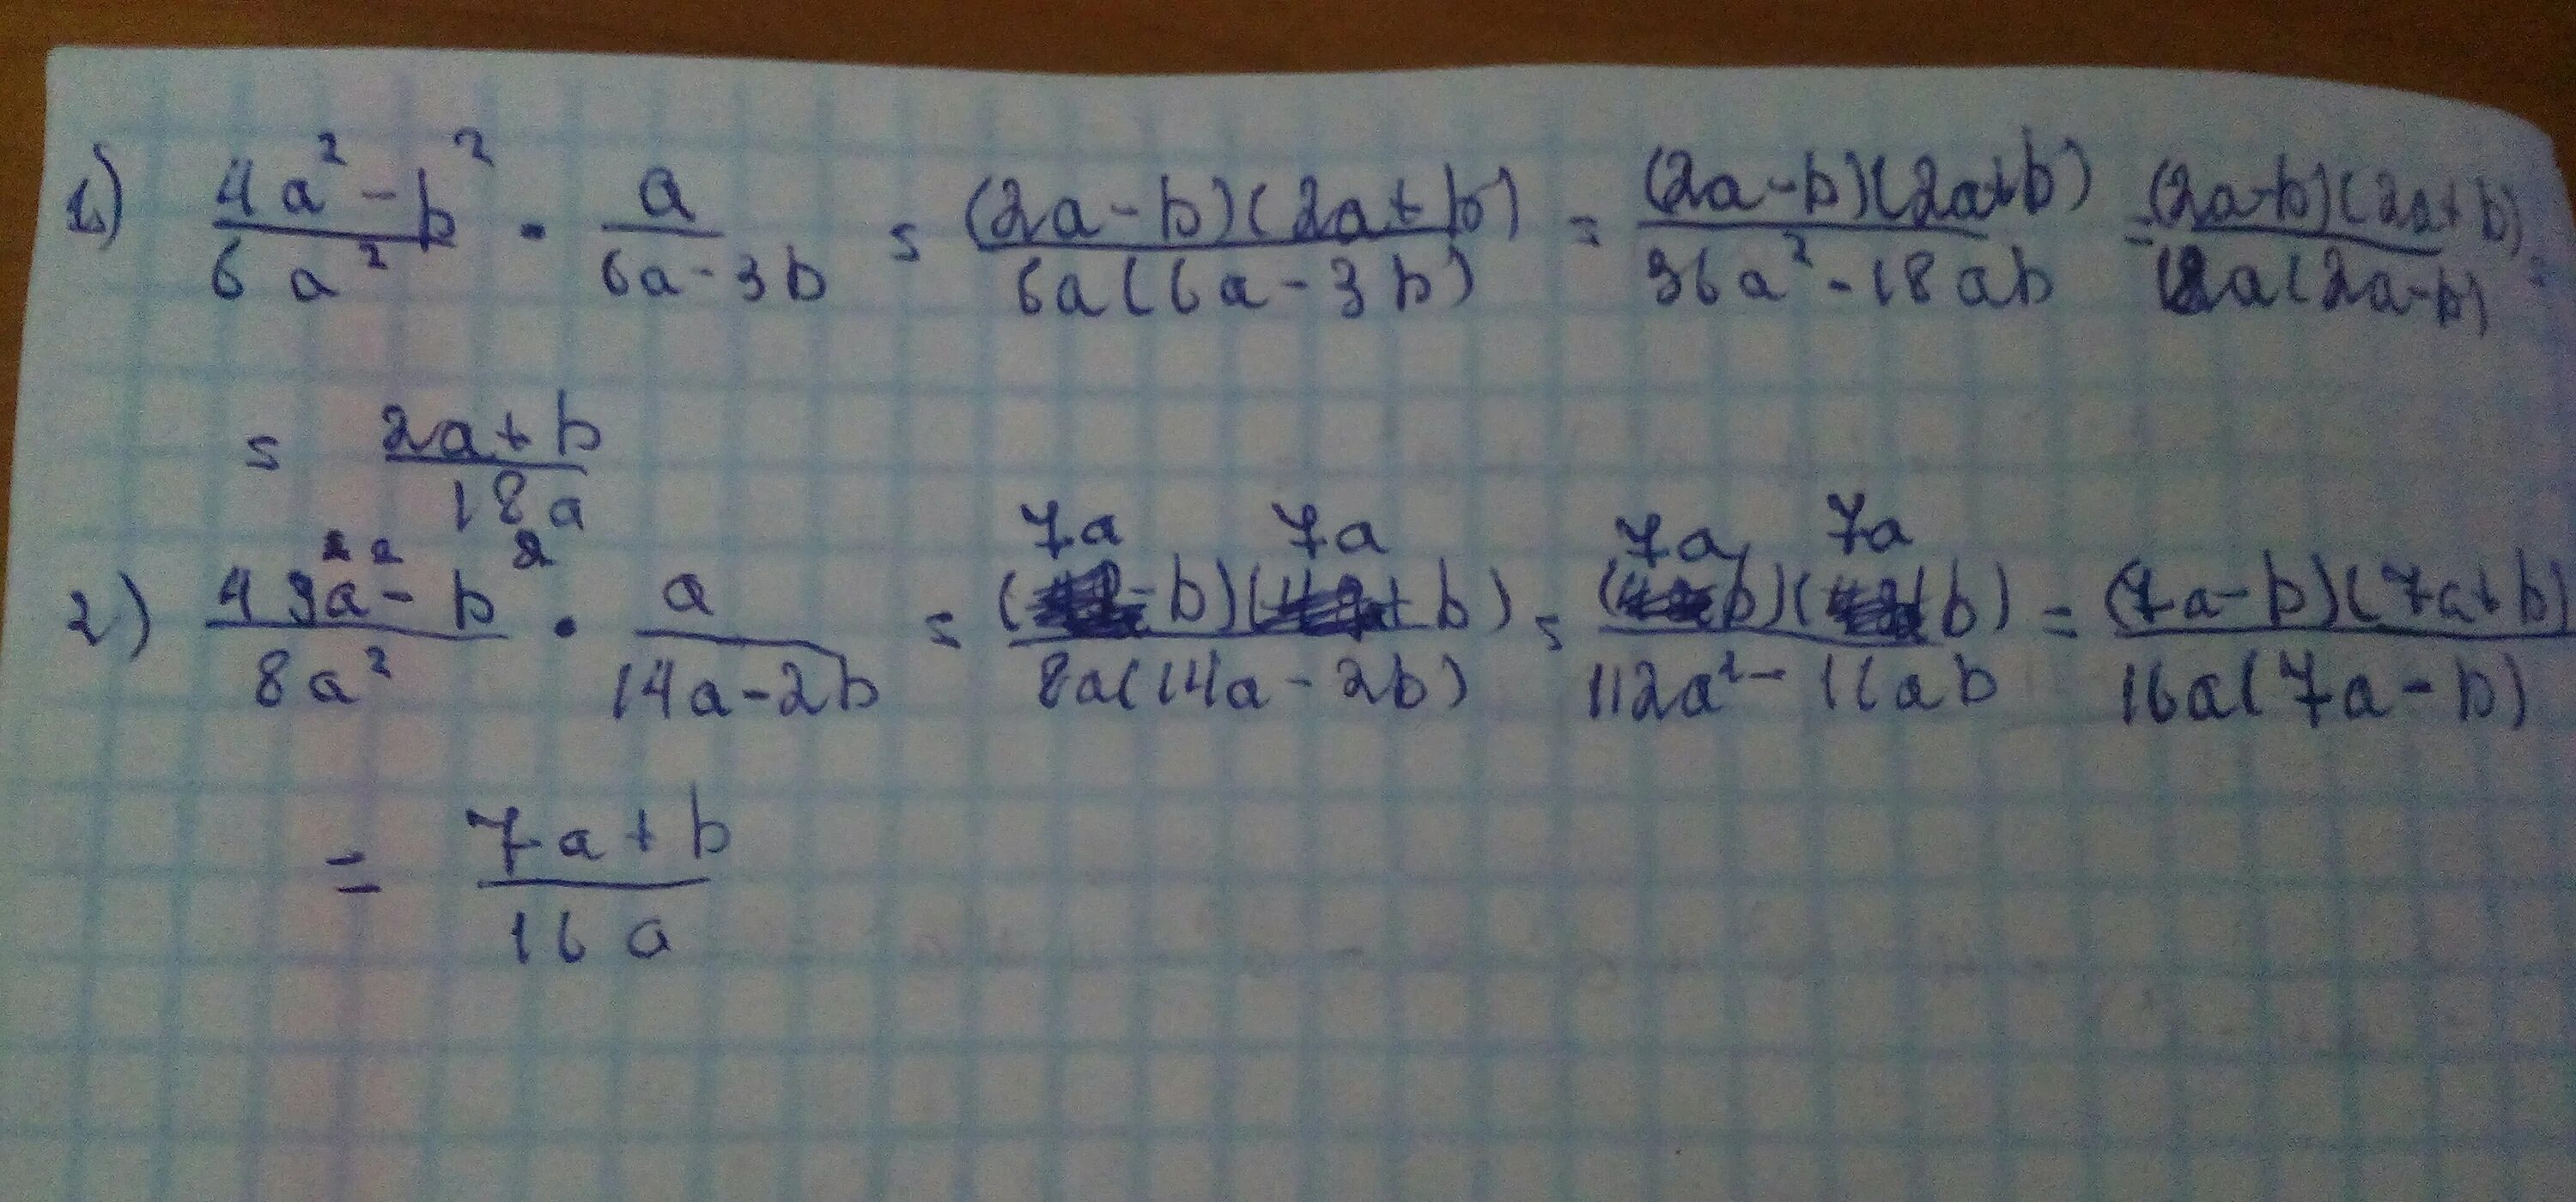 1) \frac{4a^2-b^2}{6a^2} \cdot \frac{a}{6a-3b} = \frac{(2a-b)(2a+b)}{6a(6a-3b)} = \frac{(2a-b)(2a+b)}{36a^2-18ab} = \frac{(2a-b)(2a+b)}{18a(2a-b)} =
= \frac{2a+b}{18a}
2) \frac{49a^2-b^2}{8a^2} \cdot \frac{a}{14a-2b} = \frac{(7a-b)(7a+b)}{8a(14a-2b)} = \frac{(7a-b)(7a+b)}{112a^2-16ab} = \frac{(7a-b)(7a+b)}{16a(7a-b)}
= \frac{7a+b}{16a}